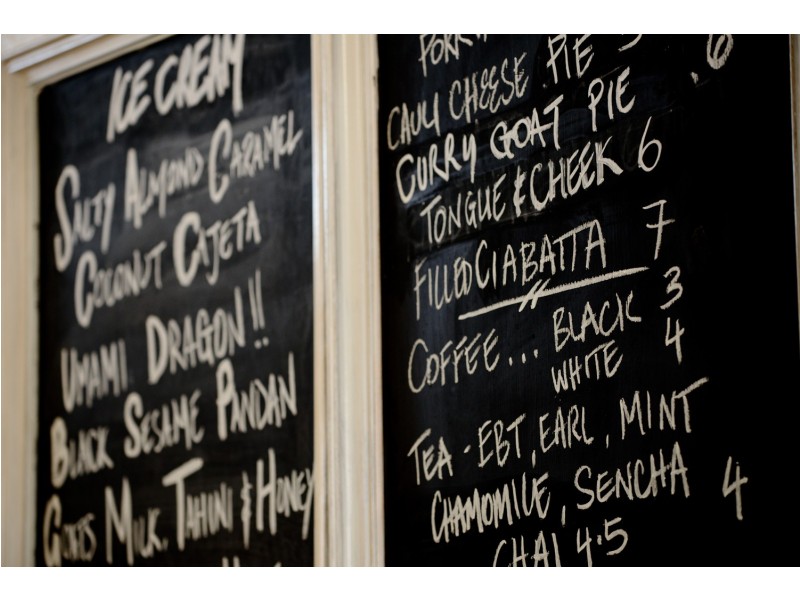 ICE CREAM
SALTY ALMOND CARAMEL
COCONUT CAJETA
UMAMI DRAGON!!
BLACK SESAME PANDAN
GOATS MILK, TAHINI & HONEY
PIE 5
CAULI CHEESE PIE .6
CURRY GOAT PIE
TONGUE & CHEEK 6
FILLED CIABATTA 7
COFFEE... BLACK 3
WHITE 4
TEA - EBT, EARL, MINT
CHAMOMILE, SENCHA 4
CHAI 4.5